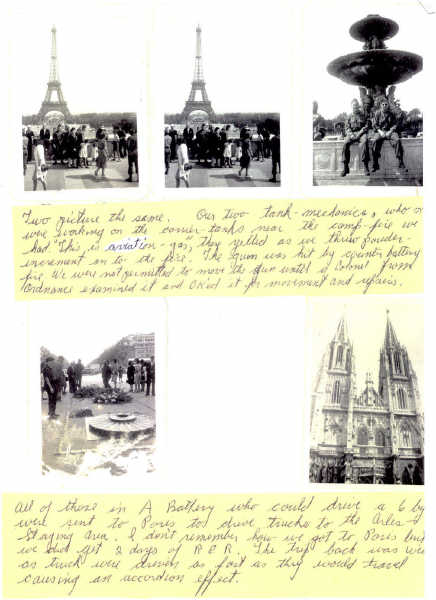 Two picture the same. Our two tank-mechanics, who
were working on the carrier-tanks near the camp-fire we
had. "This is aviation-gas," they yelled as we threw powder-
increment on to the fire. The gun was hit by counter battery
fire. We were not permitted to move the gun until a Colonel from
Ordnance examined it and OKed it for movement and repairs.
All of those in A Battery who could drive a 6 by
were sent to Paris to drive trucks to the Arles
Staging area. I don't remember how we got to Paris but
we did get 2 days of R&R. The trip back was
as truck were driven as fast as they would travel
causing an accordion effect.